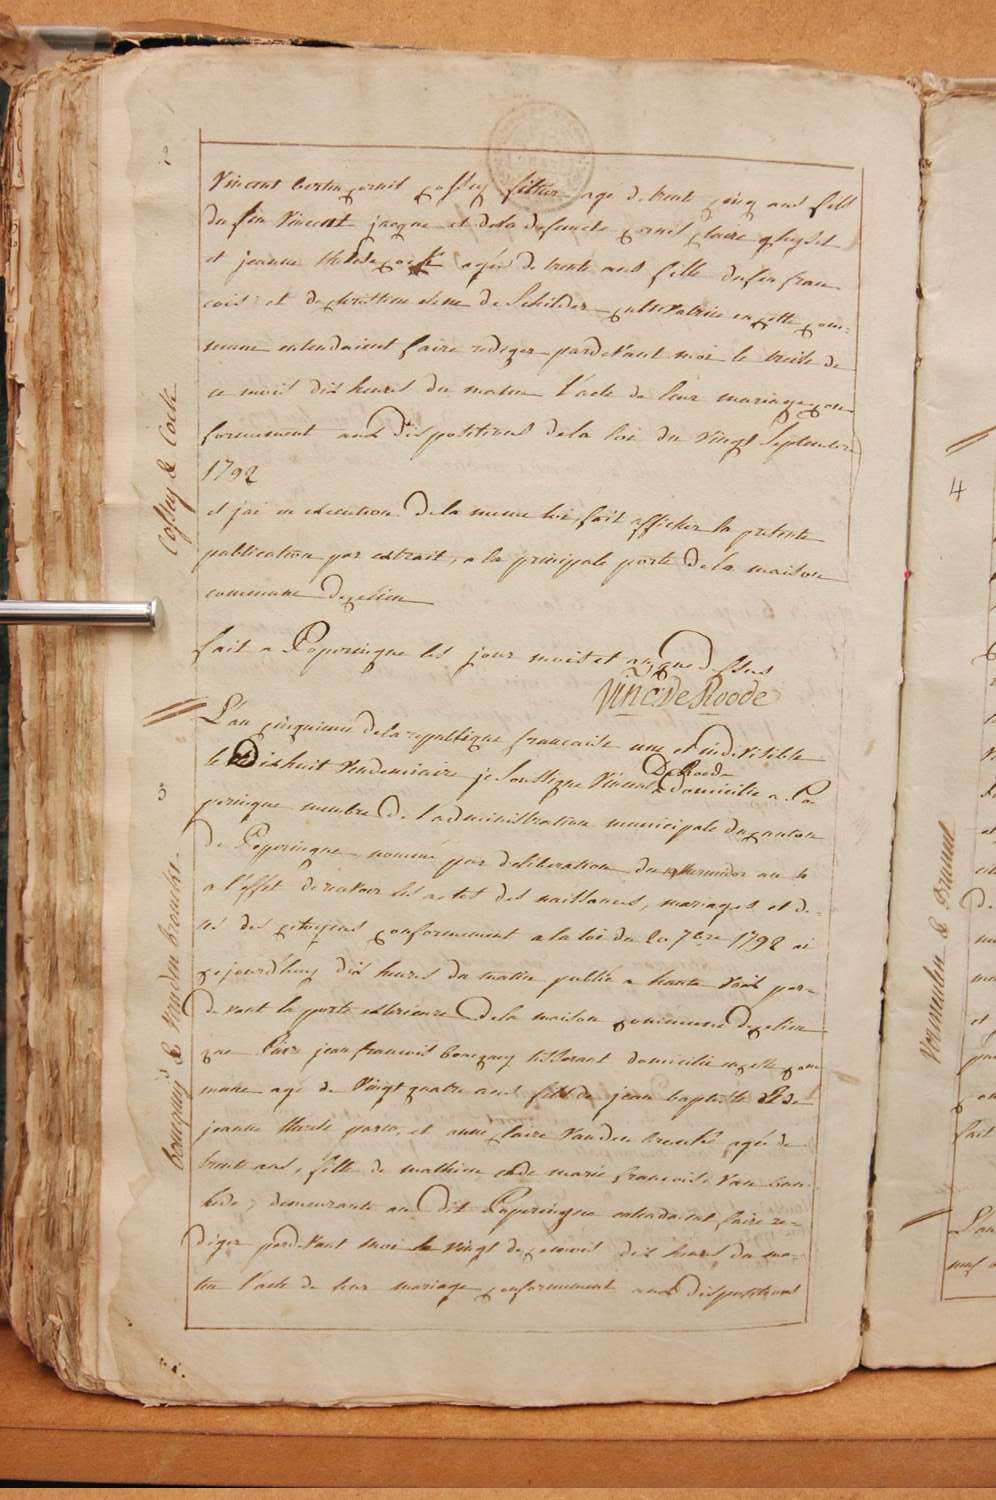 Vincent cossey age de trente cinq ans fils
du feu Vincent jacque et dela defuncte claire ghyselt
et jeanne therese cock agée de trente ans fille dufeu fran-
cois et de christine de Schilder cultivatrice en cette com-
mune entendaient faire rediger pardevant moi le treize de
ce mois dix heures du matin l'acte de leur mariage con-
formement aux dispositions dela loi du vingt Septembre
1792
et jai en execution dela meme loi fait afficher la presente
publication par extrait, a la principale porte dela maison
commune de
fait a Poperingue les jour mois et an que dessus
Vinc: De Roode
cossey & Cock
3
L'an cinquieme dela republique francaise une et indivisible
le Dixhuit vendemiaire je soussigne Vincent De Roode domicilie a Po-
peringue membre de l'administration municipale du canton
de Poperingue, nommé par deliberation du thermidor an 4
a l'effet de recevoir les actes des naissances, mariages et de-
cés des citoyens conformement a la loi du 20 7bre 1792 ai
cejourdhuy dix heures du matin publié a haute voix par-
devant la porte exterieure dela maison commune
que jean francois boucquey tisserant domicilié en cette com
mune age de vingt quatre ans fils de jean baptiste & de
jeanne parw, et anne claire vanden broucke agée de
trente ans, fille de mathieu et de marie francoise van
demeurante au dit Poperingue entendaient faire re-
diger pardevant moi le vingt de ce mois dix heures du ma-
tin l'acte de leur mariage conformement aux dispositions
boucquey & vanden broucke
4
Vermeulen & Brunel